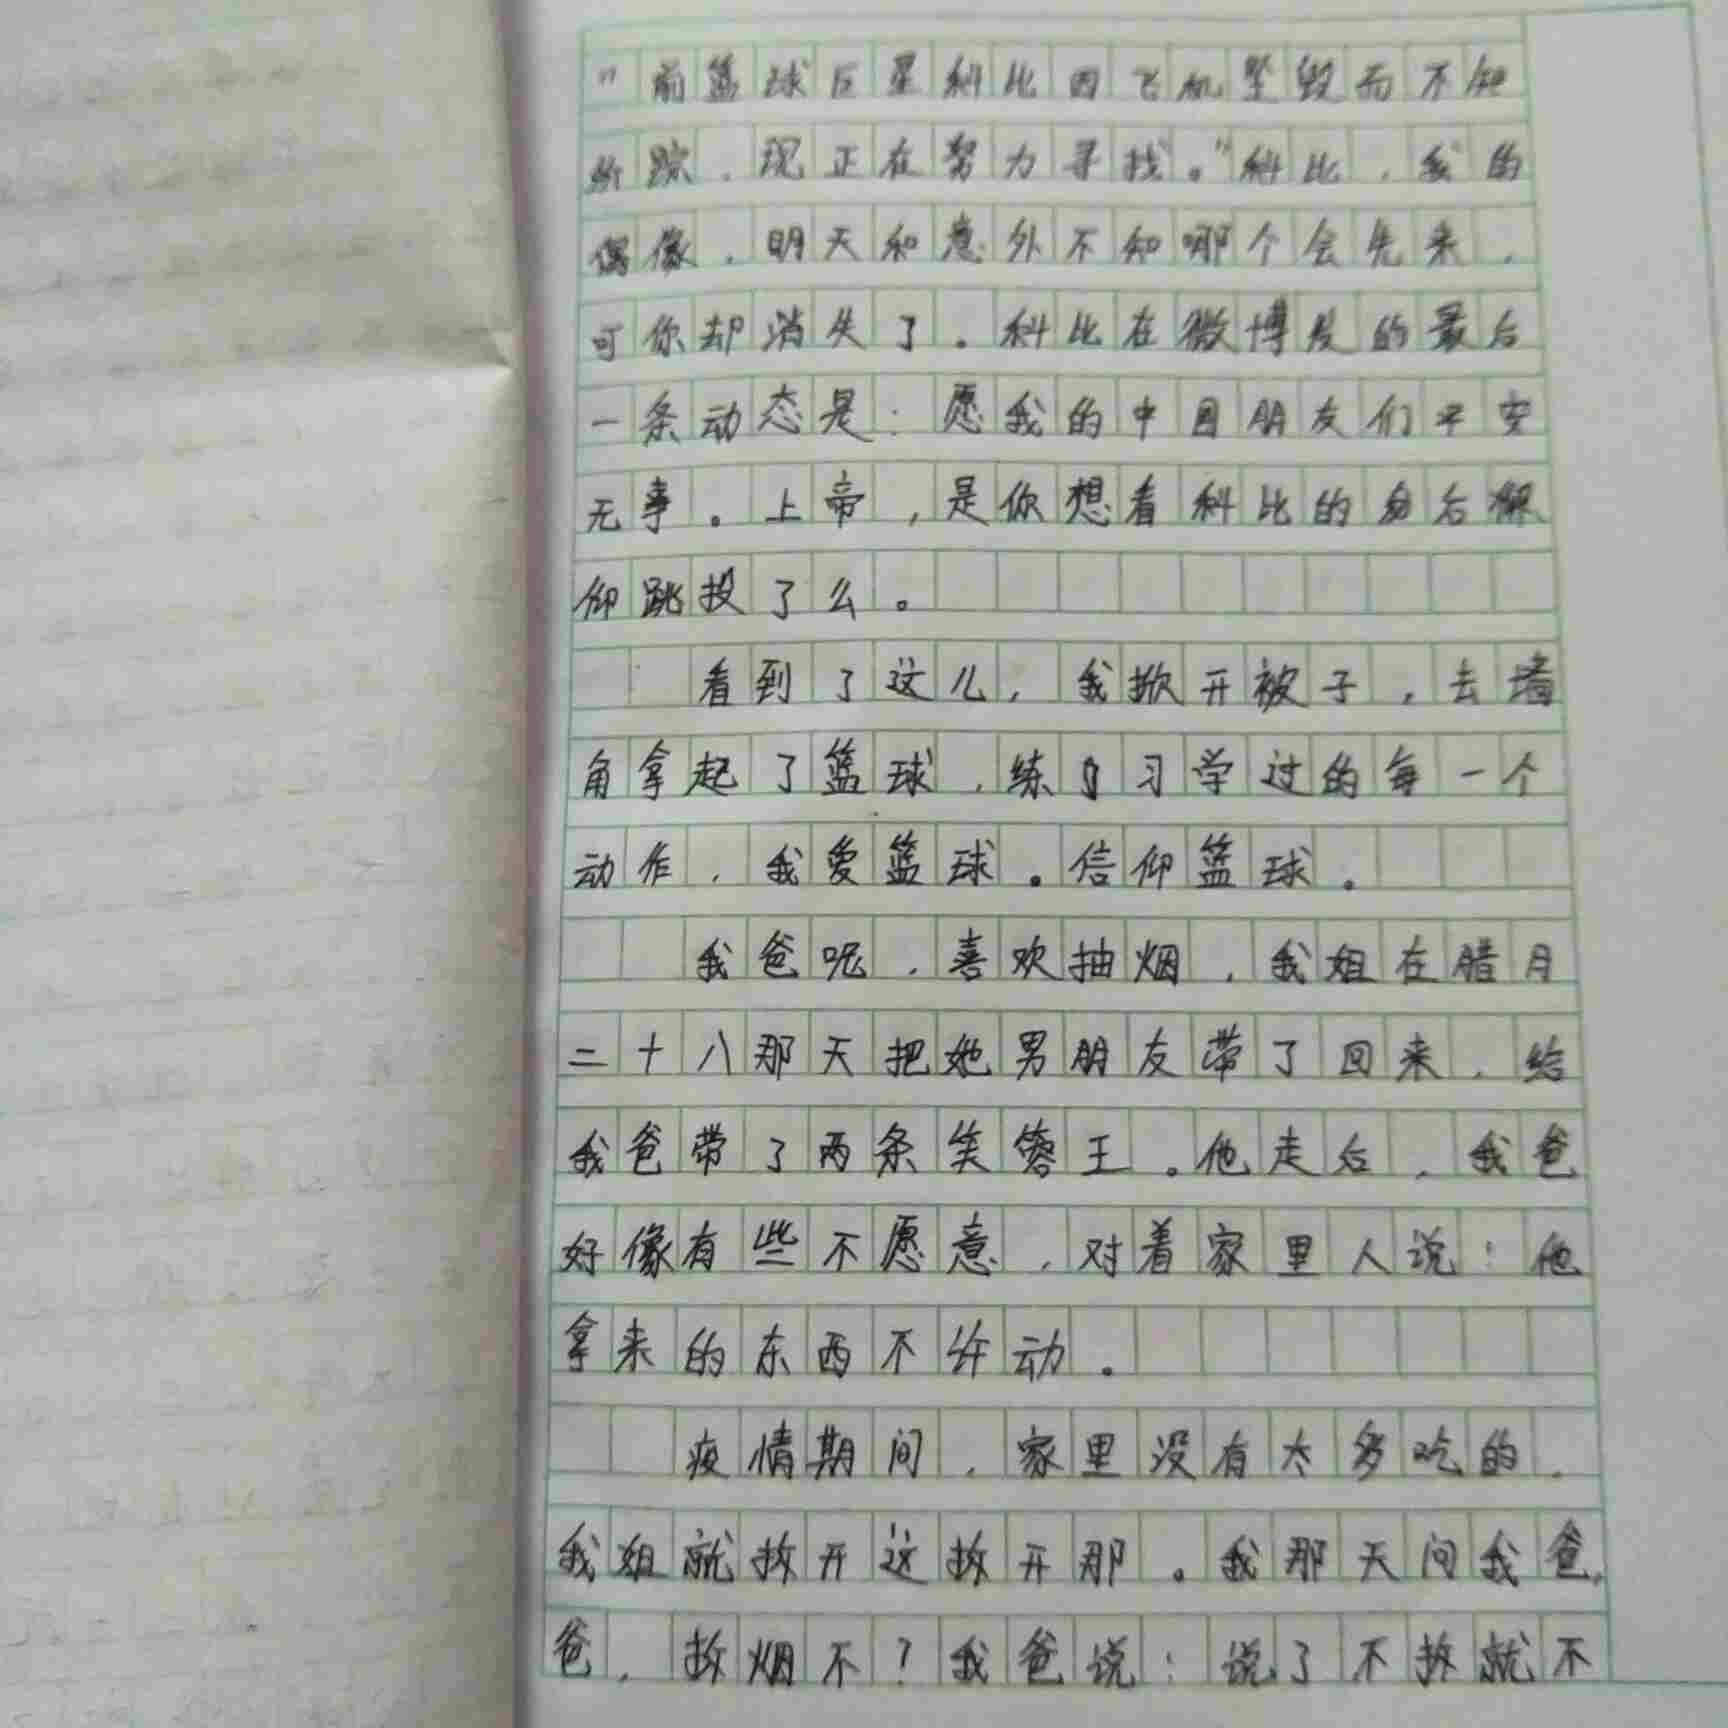 "前篮球巨星科比因飞机坠毁而不知
所踪，现正在努力寻找。"科比，我的
偶像，明天和意外不知哪个会先来，
可你却消失了。科比在微博发的最后
一条动态是：愿我的中国朋友们平安
无事。上帝，是你想看科比的身后
仰跳投了么。
看到了这儿，我掀开被子，去墙
角拿起了篮球，练习学过的每一个
动作，我爱篮球。信仰篮球。
我爸呢，喜欢抽烟，我姐在腊月
二十八那天把她男朋友带了回来，给
我爸带了两条芙蓉王。他走后，我爸
好像有些不愿意，对着家里人说：他
拿来的东西不许动。
疫情期间，家里没有太多吃的，
我姐就拆开这拆开那。我那天问我爸，
爸，拆烟不？我爸说：说了不拆就不